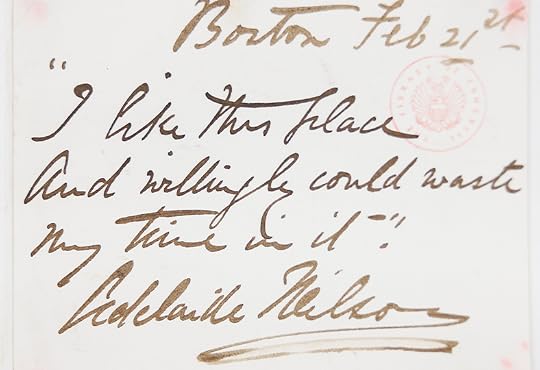 Boston Feb 21st
"I like this place
And willingly could waste
my time in it".
Adelaide Neilson